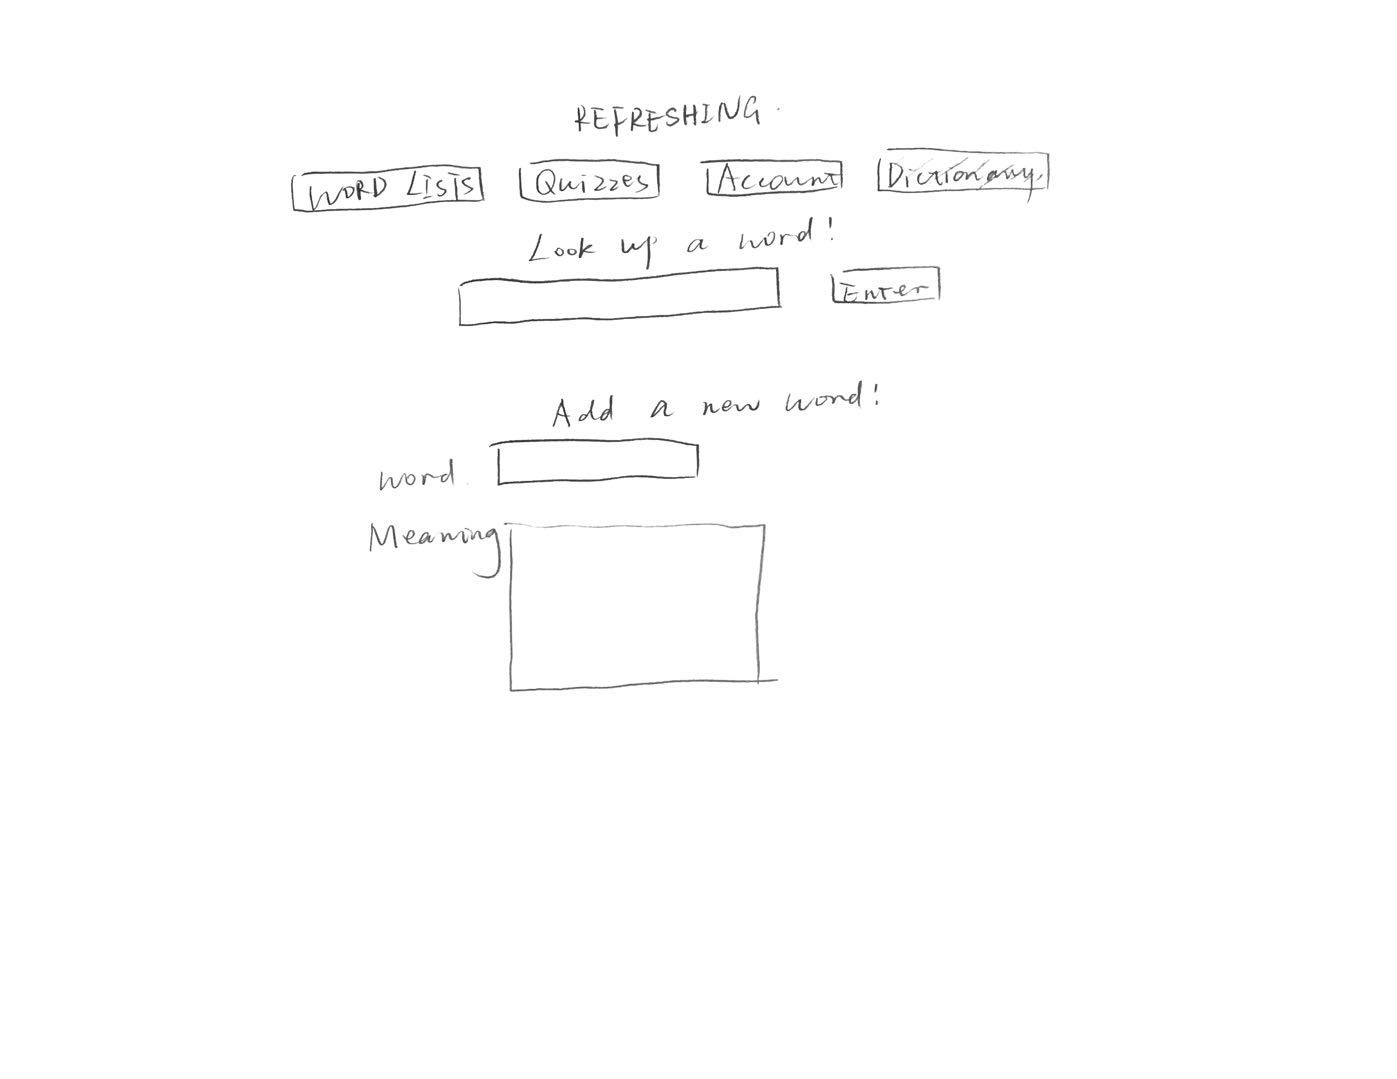 REFRESHING
WORD LISTS Quizzes Account Dictionary
Look up a word!
Enter
Add a new word!
word
Meaning